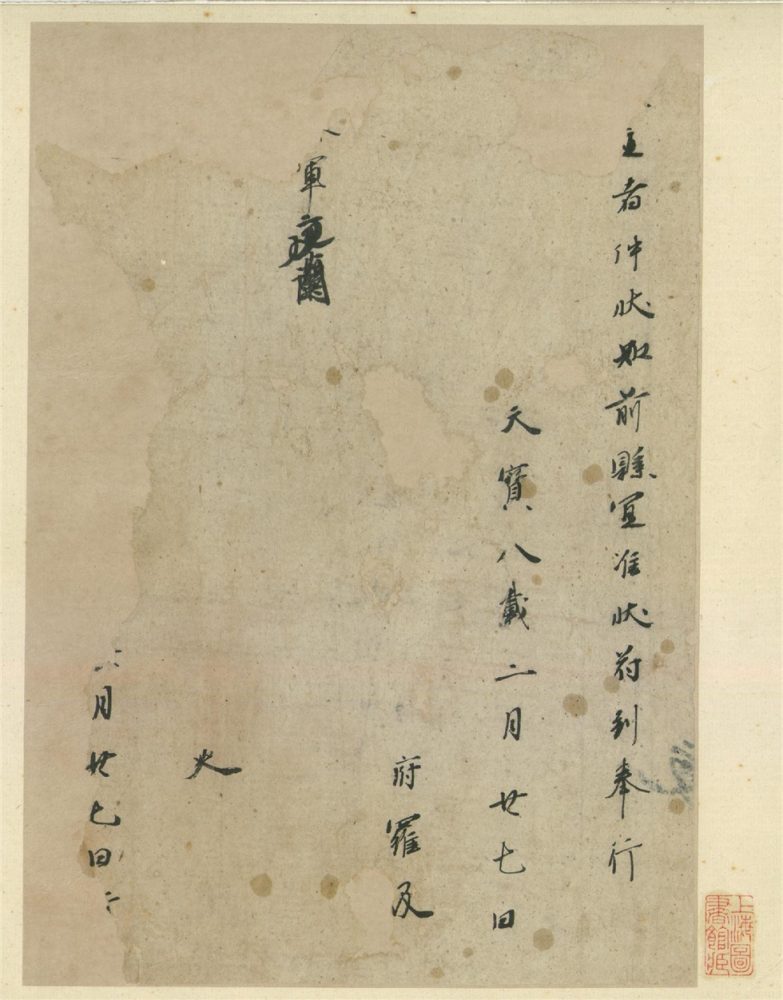 主者件狀如前縣宜准狀符到奉行
天寶八載二月廿七日
府羅及
軍蘭
史
月廿七日
上海圖
書館藏